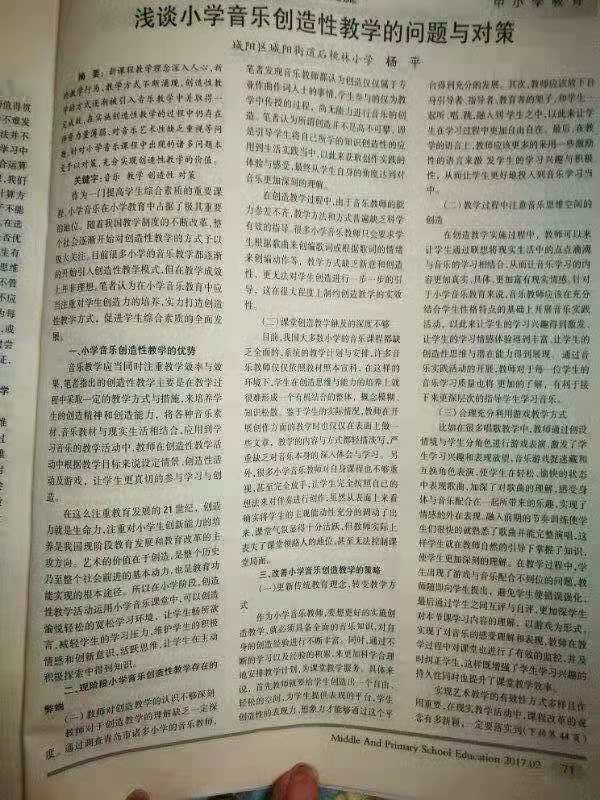 中小学教育
浅谈小学音乐创造性教学的问题与对策
城阳区城阳街道后桃林小学 杨 平
摘 要:新课程教学理念深入人心,新
的教学行为、教学方式不断涌现,创造性教
学的方式逐渐被引入音乐教学中并取得一
定成效,在实施创造性教学的过程中仍存在
师资力量薄弱、对音乐艺术性缺乏重视等问
题,针对小学音乐课程中出现的诸多问题本
文予以对策,充分实现创造性教学的价值。
关键字:音乐 教学 创造性 对策
作为一门提高学生综合素质的重要课
程,小学音乐在小学教育中占据了极其重要
的地位。随着我国教学制度的不断改革,整
个社会逐渐开始对创造性教学的方式予以
极大关注,目前很多小学的音乐教学都逐渐
的开始引入创造性教学模式,但在教学成效
上并非理想。笔者认为在小学音乐教育中应
当注重对学生创造力的培养,实力打造创造
性教学方式,促进学生综合素质的全面发
展。
一、小学音乐创造性教学的优势
音乐教学应当同时注重教学效率与效
果,笔者指出的创造性教学主要是在教学过
程中采取一定的教学方式与措施,来培养学
生的创造精神和创造能力,将各种音乐素
材、音乐教材与现实生活相结合,应用到学
习音乐的教学活动中,教师在创造性教学活
动中根据教学目标来说设定情景、创造性活
动及游戏,让学生更真切的参与学习与创
造。
在这么注重教育发展的21世纪,创造
力就是生命力,注重对小学生创新能力的培
养是我国现阶段教育发展和教育改革的主
攻方向。艺术的价值在于创造,是整个历史
乃至整个社会前进的基本动力,也是教育功
能实现的根本途径。所以在小学阶段,创造
性教学活动运用小学音乐课堂中,可以创造
愉悦轻松的宽松学习环境,让学生畅所欲
言,减轻学生的学习压力,维护学生的积极
情感和创新意识,活跃思维,让学生在主动
积极探索中得到知识。
二、现阶段小学音乐创造性教学存在的
弊端
(一)教师对创造教学的认识不够深刻
教师对于创造教学的理解缺乏一定深
度。通过调查青岛市诸多小学的音乐教师,
笔者发现音乐教师都认为创造仅仅属于专
业作曲作词人士的事情,学生参与的仅为教
学中传授的过程,尚无能力进行音乐的创
造。笔者认为所谓创造并不是高不可攀,即
是引导学生将自己所学的知识创造性的应
用到生活实践当中,以此来获取创作实践的
体验与感受,最终从学生自身的角度达到对
音乐更加深刻的理解。
在创造教学过程中,由于音乐教师的能
力参差不齐,教学方法和方式普遍缺乏科学
有效的指导。很多小学音乐教师只会要求学
生根据歌曲来创编歌词或根据歌词的情绪
来创编动作等,教学方式缺乏新意和创造
性,更无法对学生创造进行一步一步的引
导,这在很大程度上制约创造教学的实效
性。
(二)课堂创造教学触及的深度不够
目前,我国大多数小学的音乐课程都缺
乏全面的、系统的教学计划与安排,许多音
乐教师仅仅依照教材照本宣科,在这样的
环境下,学生在创造思维与能力的培养上就
很难形成一个有机结合的整体,概念模糊、
知识松散。鉴于学生的实际情况,教师在开
展创作方面的教学时也仅仅在表面上做一
些文章,教学的内容与方式都轻描淡写,严
重缺乏对音乐本身的深入体会与学习。另
外,很多小学音乐教师对自身课程也不够重
视,甚至完全放手,让学生完全按照自己的
想法来对伴奏进行创作,虽然从表面上来看
确实将学生的主观能动性充分的调动了出
来,课堂气氛显得十分活跃,但教师实际上
丧失了课堂领路人的地位,甚至无法控制课
堂局面。
三、改善小学音乐创造教学的策略
(一)更新传统教育理念,转变教学方
式
作为小学音乐教师,要想更好的实施创
造教学,就必须具备全面的音乐知识,对自
身的创造经验进行不断丰富。同时,通过不
断的学习以及经验的积累,来更加科学合理
地安排教学计划,为课堂教学服务。具体来
说,首先教师就要给学生创造出一个自由、
轻松的空间,为学生提供表现的平台,学生
创造性的表现力,想象力才能够通过这个平
台得到充分的发展。其次,教师应该放下自
身引导者、指导者、教育者的架子,和学生一
起听、唱、跳,融入到学生之中,以此来让学
生在学习过程中更加自由自在。最后,在教
学的语言上,教师应该更多的采用一些激励
性的语言来激发学生的学习兴趣与积极
性,从而让学生更好地投入到音乐学习当
中。
(二)教学过程中注意音乐思维空间的
创造
在创造教学实施过程中,教师可以来
让学生通过联想将现实生活中的点点滴滴
与音乐的学习相结合,从而让音乐学习的内
容更加真实、具体,更加富有现实情感。针对
于小学音乐教育来说,音乐教师应该在充分
结合学生性格特点的基础上开展音乐实践
活动,以此来让学生的学习兴趣得到激发,
让学生的学习情感体验得到丰富,让学生的
创造性思维与潜在能力得到展现。通过音
乐实践活动的开展,教师对于每一位学生的
音乐学习质量也将更加的了解,有利于接
下来更深层次的指导学生学习音乐。
(三)合理充分利用游戏教学方式
比如在很多唱歌教学中,教师通过创设
情境与学生分角色进行游戏表演,激发了学
生学习兴趣和表现欲望,音乐游戏捉迷藏和
互换角色表演,使学生在轻松、愉快的状态
中表现歌曲,加深了对歌曲的理解,感受身
体与音乐配合在一起所带来的乐趣,实现了
情感的外在表现,融入前期的节奏训练使学
生们很快的就熟悉了歌曲并能完整演唱,这
样学生就在教师自然的引导下掌握了知识,
使学生更加深刻的理解。在教学过程中,学
生出现了游戏与音乐配合不到位的问题,教
师随即向学生提出,避免学生使错误强化,
最后通过学生之间互评与自评,更加深学生
对本节课学习内容的理解。以游戏为形式,
实现了对音乐的感受理解和表现,教师在教
学过程中对课堂也进行了有效的监控,并及
时纠正学生,这样既增强了学生学习兴趣的
持久性同时也提升了课堂教学效率。
实现艺术教学的有效性方式多样且作
用重要,在现实教学活动中,课程改革的观
念有多新颖,一定要落实到(下转第44页)
Middle And Primary School Education 2017.02
71